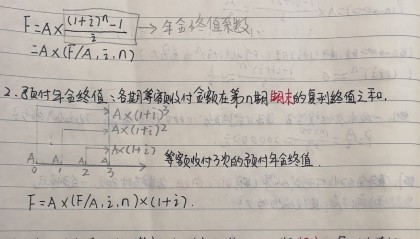 F=A×[(1+i)ⁿ-1]/i → 年金终值系数.
=A×(F/A,i,n)
2.预付年金终值:各期等额收付金额在第n期期末的复利终值之和.
A×(1+i)³
A×(1+i)²
A×(1+i)
A A A A
0 1 2 3
等额收付3次的预付年金终值
F=A×(F/A,i,n)×(1+i).